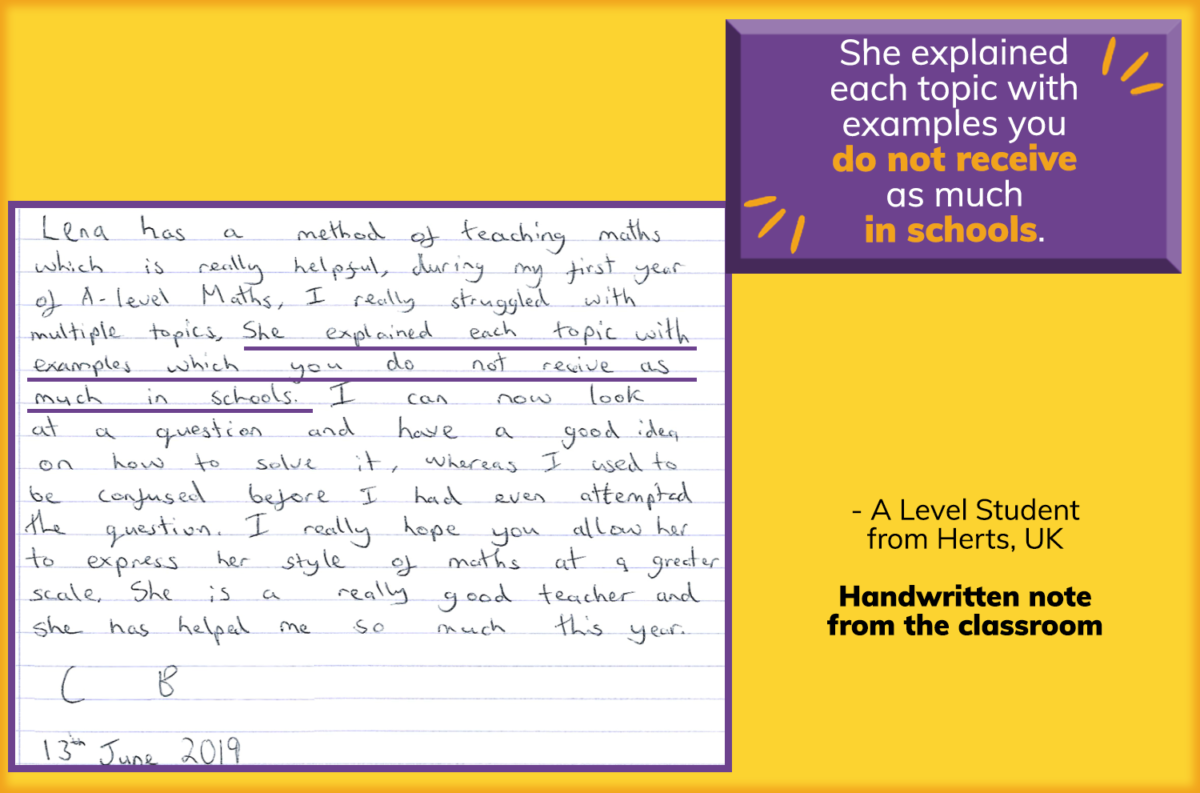 She explained
each topic with
examples you
do not receive
as much
in schools.
Lena has a method of teaching maths
which is really helpful, during my first year
of A-level Maths, I really struggled with
multiple topics, She explained each topic with
examples which you do not recive as
much in schools. I can now look
at a question and have a good idea
on how to solve it, whereas I used to
be confused before I had even attempted
the question. I really hope you allow her
to express her style of maths at a greater
scale. She is a really good teacher and
she has helped me so much this year.
C B
13th June 2019
- A Level Student
from Herts, UK
Handwritten note
from the classroom